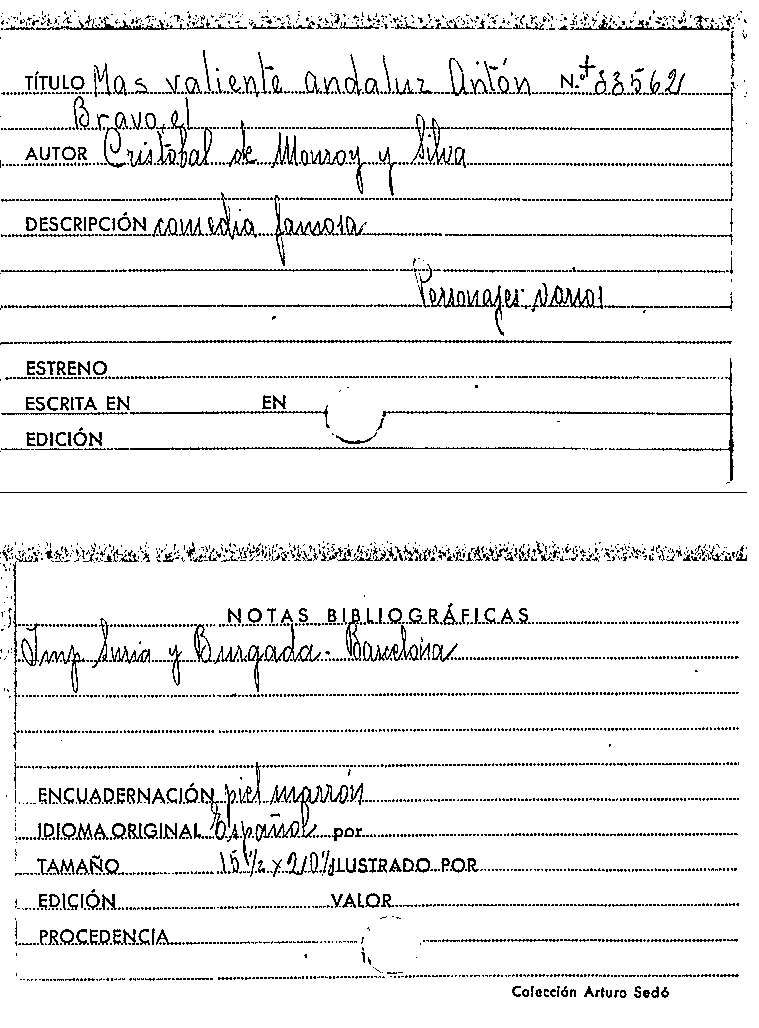 TÍTULO Mas valiente andaluz Antón N.º + 83562
Bravo, el
AUTOR Cristóbal de Monroy y Silva
DESCRIPCIÓN comedia famosa
Personajes: varios
ESTRENO
ESCRITA EN EN
EDICIÓN
NOTAS BIBLIOGRÁFICAS
Imp Suria y Burgada. Barcelona
ENCUADERNACIÓN piel marrón
IDIOMA ORIGINAL Español por
TAMAÑO 15 ½ x 21 0% ILUSTRADO POR
EDICIÓN VALOR
PROCEDENCIA
Colección Arturo Sedó